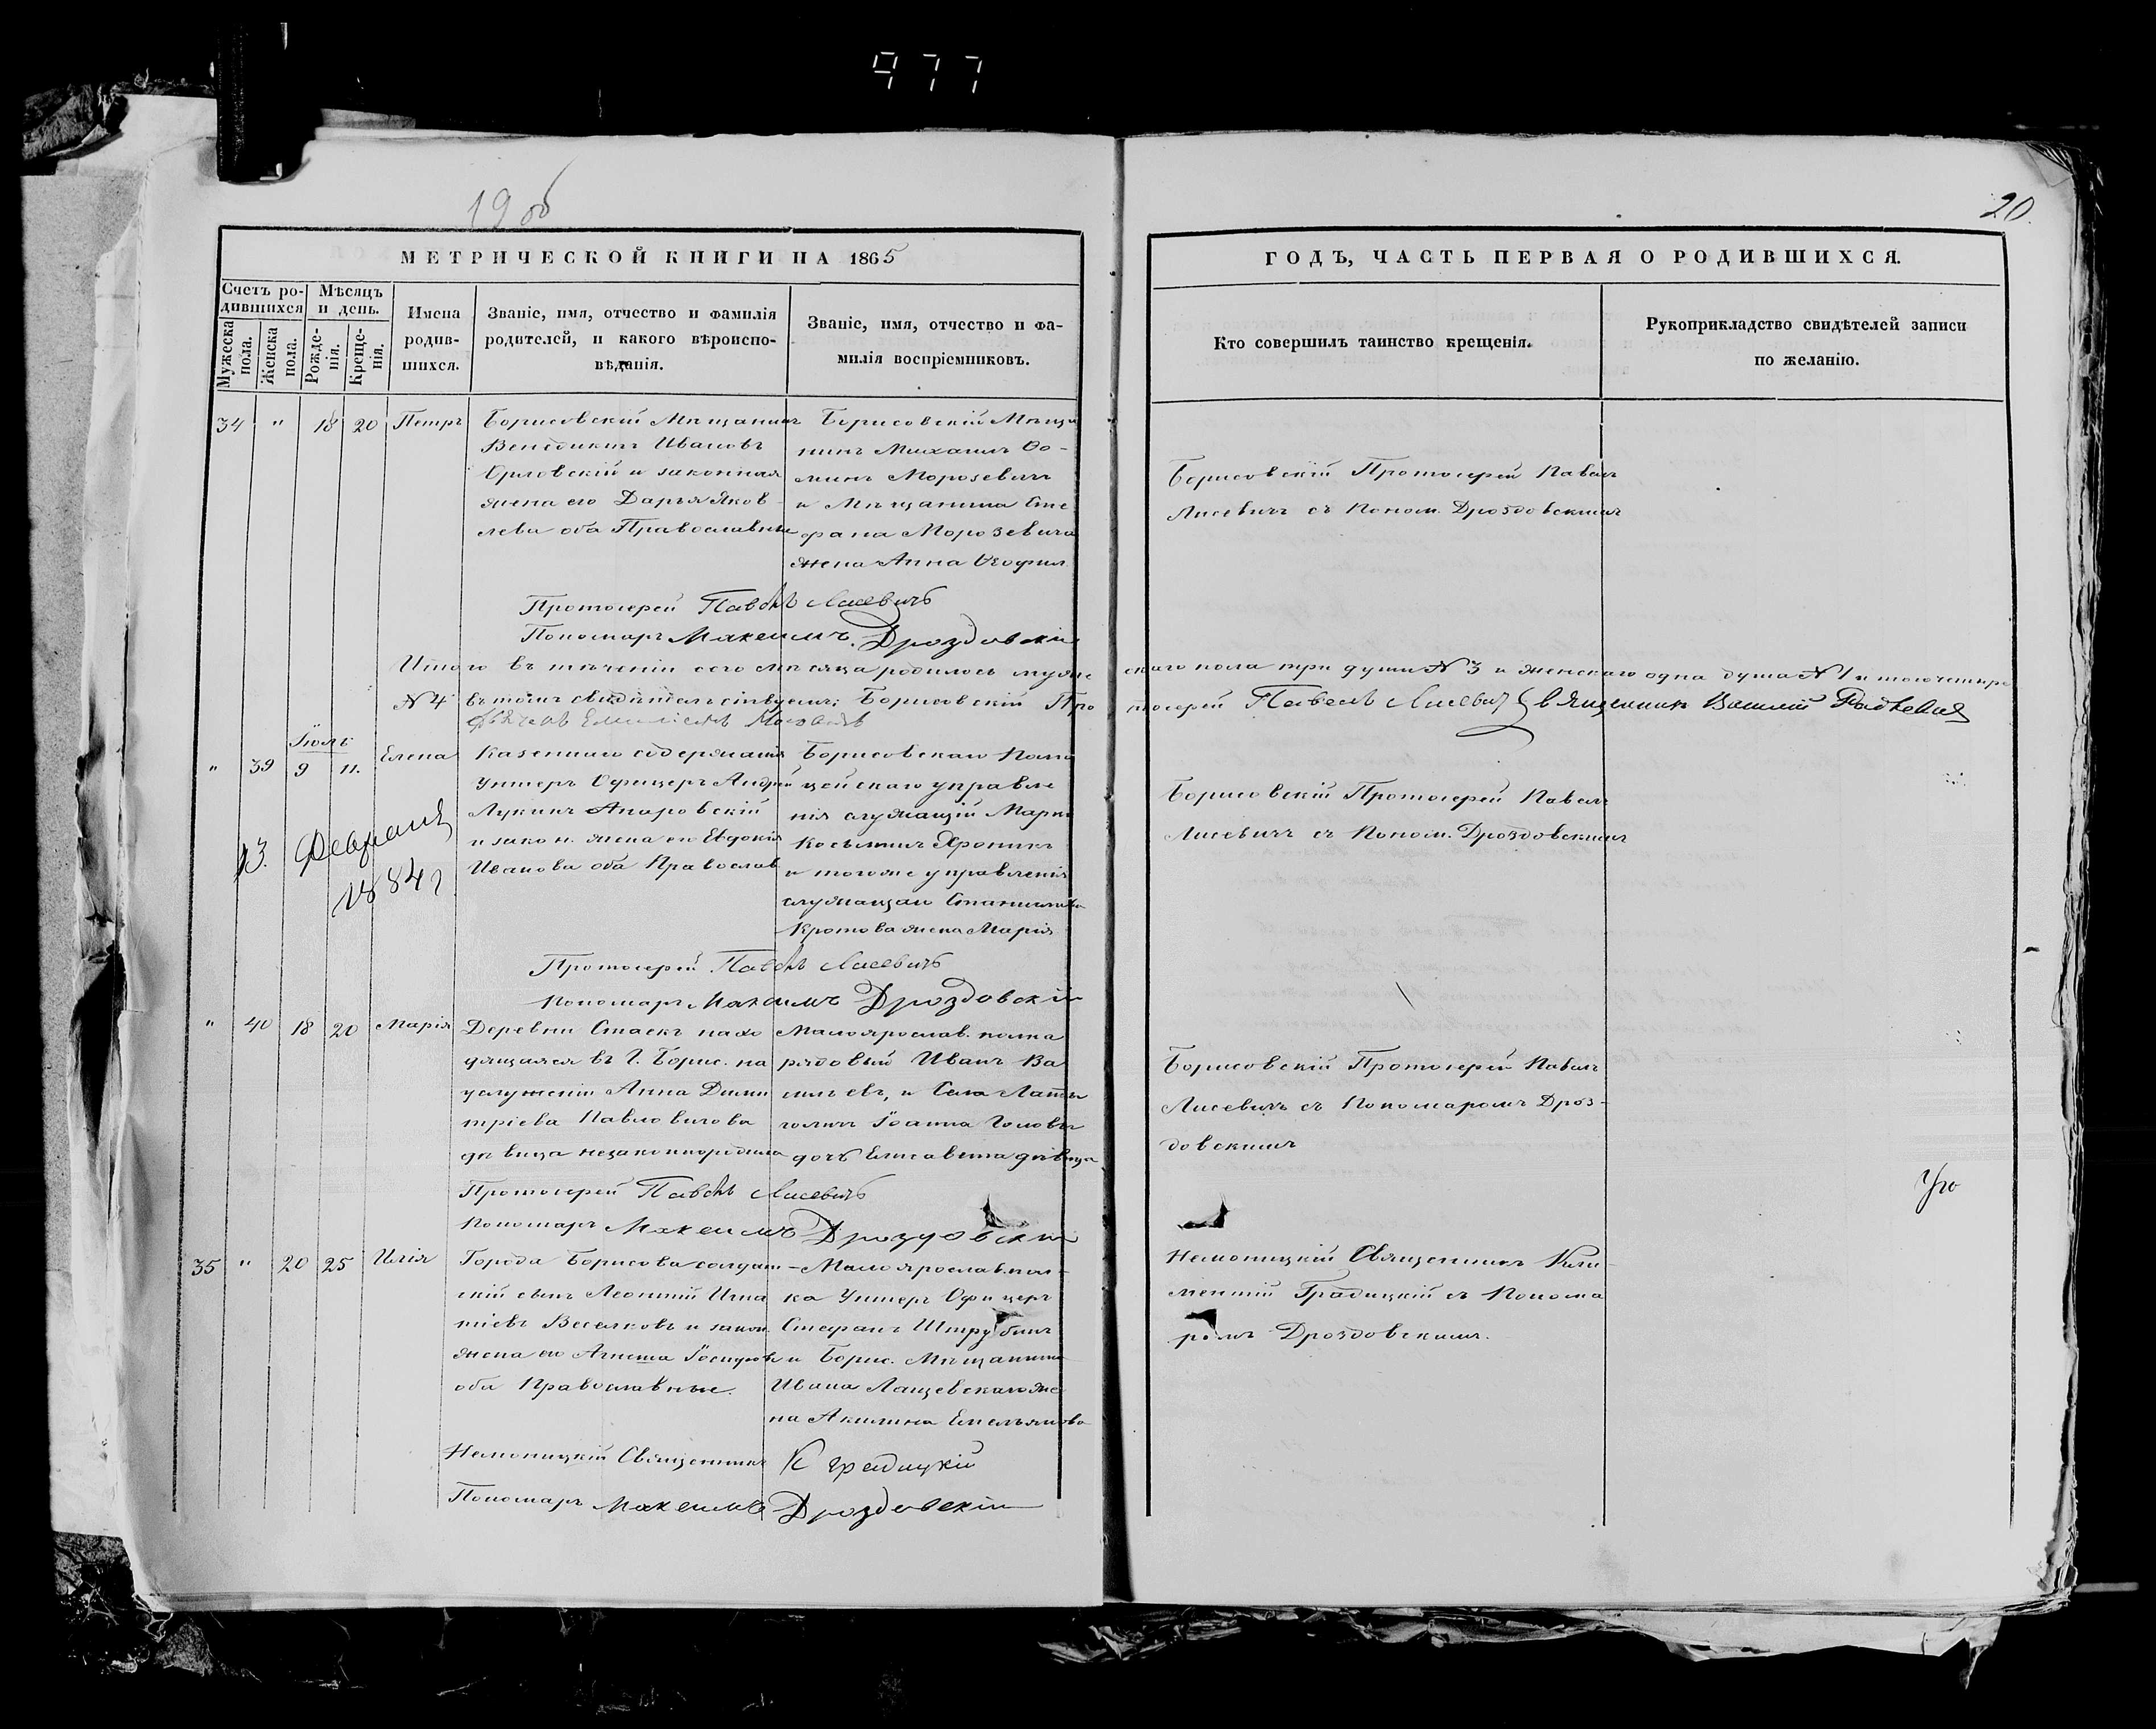 977
19 об
20.
МЕТРИЧЕСКОЙ КНИГИ НА 1865
ГОДЪ, ЧАСТЬ ПЕРВАЯ О РОДИВШИХСЯ.
Счетъ ро-
дившихся
Мужеска пола.
Женска пола.
Мѣсяцъ
и день.
Рожде-
нія.
Креще-
нія.
Имена
родив-
шихся.
Званіе, имя, отчество и фамилія
родителей, и какого вѣроиспо-
вѣданія.
Званіе, имя, отчество и фа-
милія воспріемниковъ.
Кто совершилъ таинство крещенія.
Рукоприкладство свидѣтелей записи
по желанію.
34 " 18 20 Петръ
Борисовскій Мѣщанинъ
Венедиктъ Ивановъ
Орловскій и законная
жена его Дарья Яков-
лева оба Православные
Борисовскій Мѣща
нинъ Михаилъ Ѳо-
минъ Морозевичъ
и Мѣщанина Сте
фана Морозевича
жена Анна Ѳеофил
Борисовскій Протоіерей Павелъ
Лисевичъ съ Поном. Дроздовскимъ
Протоіерей Павелъ Лисевичъ
Пономарь Максимъ Дроздовскій
Итого въ теченіи сего мѣсяца родилось муже
скаго пола три души № 3 и женскаго одна душа № 1 и того четыре
№ 4 въ томъ свидѣтельствуемъ: Борисовскій Про
тоіерей Павелъ Лисевичъ Священникъ Василій
Іюль
" 39 9 11. Елена
Казеннаго содержанія
Унтеръ Офицеръ Андрей
Лукинъ Апаровскій
и закон. жена его Евдокія
Иванова оба Православ
Борисовскаго Поли
цейскаго управле
нія служащій Марк
Косьминъ Хроникъ
и тогоже управленія
служащаго Станислава
Кротова жена Марія
Борисовскій Протоіерей Павелъ
Лисевичъ съ Поном. Дроздовскимъ
13. Февраля
1884 г
Протоіерей Павелъ Лисевичъ
Пономарь Максимъ Дроздовскій
" 40 18 20 Марія
Деревни Стаекъ нахо
дящаяся въ Г. Борис. на
услуженіи Анна Дими
тріева Павловичова
дѣвица незаконнорожденна
Малоярослав. полка
рядовый Иванъ Ва
сильевъ, и Села
Іоанна
дочь Елисавета дѣвица
Борисовскій Протоіерей Павелъ
Лисевичъ съ Пономаромъ Дроз-
довскимъ
Протоіерей Павелъ Лисевичъ
Пономарь Максимъ Дроздовскій
35 " 20 25 Илія
Города Борисова солдат-
скій сынъ Леонтій Игна
тіевъ Веселковъ и закон.
жена его Агнета Іосифова
оба Православные.
Малоярослав. пол-
ка Унтеръ Офицеръ
Стефанъ Штрубинъ
и Борис. Мѣщанина
Ивана Лащевскаго же
на Акилина Емельянова
Немоницкій Священникъ Кли-
ментій Градицкій съ Понома
ромъ Дроздовскимъ.
Немоницкій Священникъ К Градицкій
Пономарь Максимъ Дроздовскій